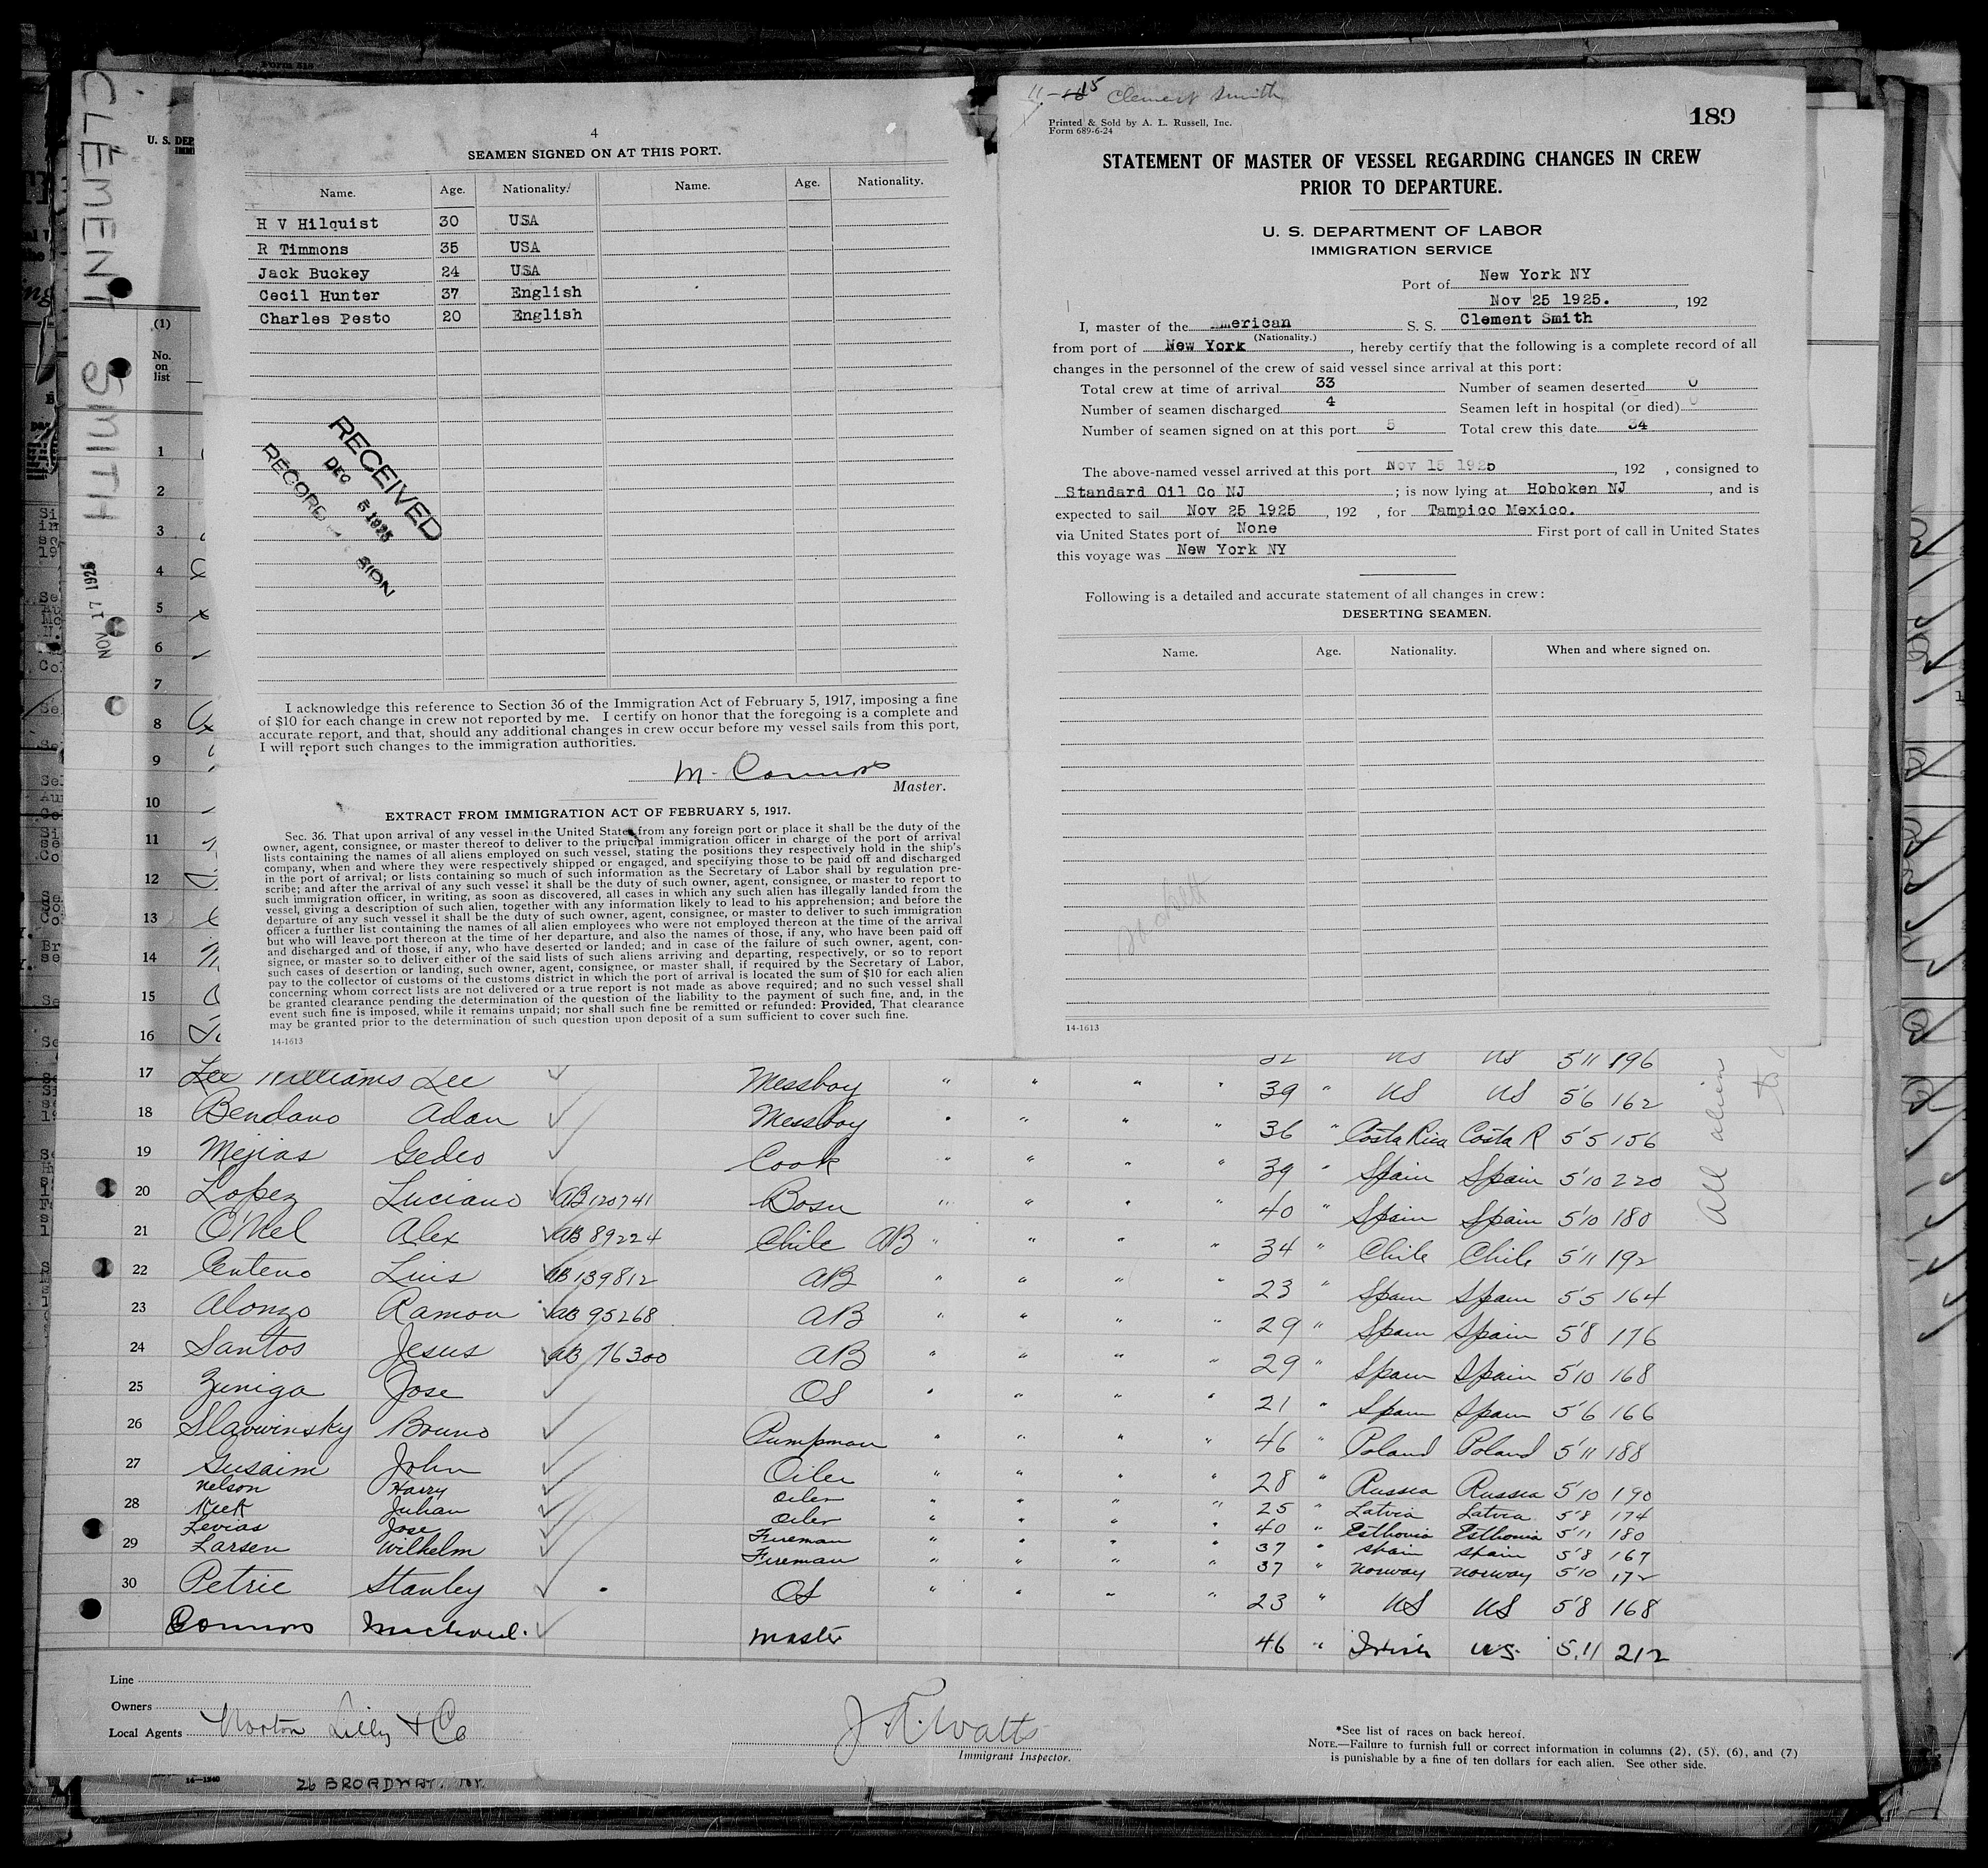 CLEMENT SMITH
NOV 17 1925
4
SEAMEN SIGNED ON AT THIS PORT.
Name. Age. Nationality. Name. Age. Nationality.
H V Hilquist 30 USA
R Timmons 35 USA
Jack Buckey 24 USA
Cecil Hunter 37 English
Charles Pesto 20 English
RECEIVED
DEC 5 1925
RECORD SION
I acknowledge this reference to Section 36 of the Immigration Act of February 5, 1917, imposing a fine
of $10 for each change in crew not reported by me. I certify on honor that the foregoing is a complete and
accurate report, and that, should any additional changes in crew occur before my vessel sails from this port,
I will report such changes to the immigration authorities.
M. Connors
Master.
EXTRACT FROM IMMIGRATION ACT OF FEBRUARY 5, 1917.
Sec. 36. That upon arrival of any vessel in the United States from any foreign port or place it shall be the duty of the
owner, agent, consignee, or master thereof to deliver to the principal immigration officer in charge of the port of arrival
lists containing the names of all aliens employed on such vessel, stating the positions they respectively hold in the ship's
company, when and where they were respectively shipped or engaged, and specifying those to be paid off and discharged
in the port of arrival; or lists containing so much of such information as the Secretary of Labor shall by regulation pre-
scribe; and after the arrival of any such vessel it shall be the duty of such owner, agent, consignee, or master to report to
such immigration officer, in writing, as soon as discovered, all cases in which any such alien has illegally landed from the
vessel, giving a description of such alien, together with any information likely to lead to his apprehension; and before the
departure of any such vessel it shall be the duty of such owner, agent, consignee, or master to deliver to such immigration
officer a further list containing the names of all alien employees who were not employed thereon at the time of the arrival
but who will leave port thereon at the time of her departure, and also the names of those, if any, who have been paid off
and discharged and of those, if any, who have deserted or landed; and in case of the failure of such owner, agent, con-
signee, or master so to deliver either of the said lists of such aliens arriving and departing, respectively, or so to report
such cases of desertion or landing, such owner, agent, consignee, or master shall, if required by the Secretary of Labor,
pay to the collector of customs of the customs district in which the port of arrival is located the sum of $10 for each alien
concerning whom correct lists are not delivered or a true report is not made as above required; and no such vessel shall
be granted clearance pending the determination of the question of the liability to the payment of such fine, and, in the
event such fine is imposed, while it remains unpaid; nor shall such fine be remitted or refunded: Provided, That clearance
may be granted prior to the determination of such question upon deposit of a sum sufficient to cover such fine.
14-1613
11-15 Clement Smith
Printed & Sold by A. L. Russell, Inc.
Form 689-6-24
189
STATEMENT OF MASTER OF VESSEL REGARDING CHANGES IN CREW
PRIOR TO DEPARTURE.
U. S. DEPARTMENT OF LABOR
IMMIGRATION SERVICE
Port of New York NY
Nov 25 1925. , 192
I, master of the American S. S. Clement Smith
(Nationality.)
from port of New York , hereby certify that the following is a complete record of all
changes in the personnel of the crew of said vessel since arrival at this port:
Total crew at time of arrival 33 Number of seamen deserted 0
Number of seamen discharged 4 Seamen left in hospital (or died) 0
Number of seamen signed on at this port 5 Total crew this date 34
The above-named vessel arrived at this port Nov 15 1925 , 192 , consigned to
Standard Oil Co NJ ; is now lying at Hoboken NJ , and is
expected to sail Nov 25 1925 , 192 , for Tampico Mexico.
via United States port of None First port of call in United States
this voyage was New York NY
Following is a detailed and accurate statement of all changes in crew:
DESERTING SEAMEN.
Name. Age. Nationality. When and where signed on.
14-1613
U. S. DEP
(1)
No.
on
list
1
2
3
4
5
6
7
8
9
10
11
12
13
14
15
16
32 US US 5'11 196
17 Lee Williams Lee Messboy " " " " 39 " US US 5'6 162
18 Bendano Adan Messboy " " " " 36 " Costa Rica Costa R 5'5 156
19 Mejias Gedeo Cook " " " " 39 " Spain Spain 5'10 220
20 Lopez Luciano AB 120741 Bosn " " " " 40 " Spain Spain 5'10 180
21 O'Nel Alex AB 89224 Chile AB " " " " 34 " Chile Chile 5'11 192
22 Centeno Luis AB 139812 AB " " " " 23 " Spain Spain 5'5 164
23 Alonzo Ramon AB 95268 AB " " " " 29 " Spain Spain 5'8 176
24 Santos Jesus AB 76300 AB " " " " 29 " Spain Spain 5'10 168
25 Zuniga Jose OS " " " " 21 " Spain Spain 5'6 166
26 Slavwinsky Bruno Pumpman " " " " 46 " Poland Poland 5'11 188
27 Gusaim John Oiler " " " " 28 " Russia Russia 5'10 190
Nelson Harry Oiler " " " " 25 " Latvia Latvia 5'8 174
28 Keek Julian Oiler " " " " 40 " Esthonia Esthonia 5'11 180
Levias Jose Fireman " " " " 37 " Spain Spain 5'8 167
29 Larsen Wilhelm Fireman " " " " 37 " Norway Norway 5'10 172
30 Petrie Stanley OS " " " " 23 " US US 5'8 168
Connors Michael. master 46 " Irish US. 5.11 212
All alien
Line
Owners
Local Agents Norton Lilly & Co
26 BROADWAY. NY.
Immigrant Inspector.
*See list of races on back hereof.
NOTE.—Failure to furnish full or correct information in columns (2), (5), (6), and (7)
is punishable by a fine of ten dollars for each alien. See other side.